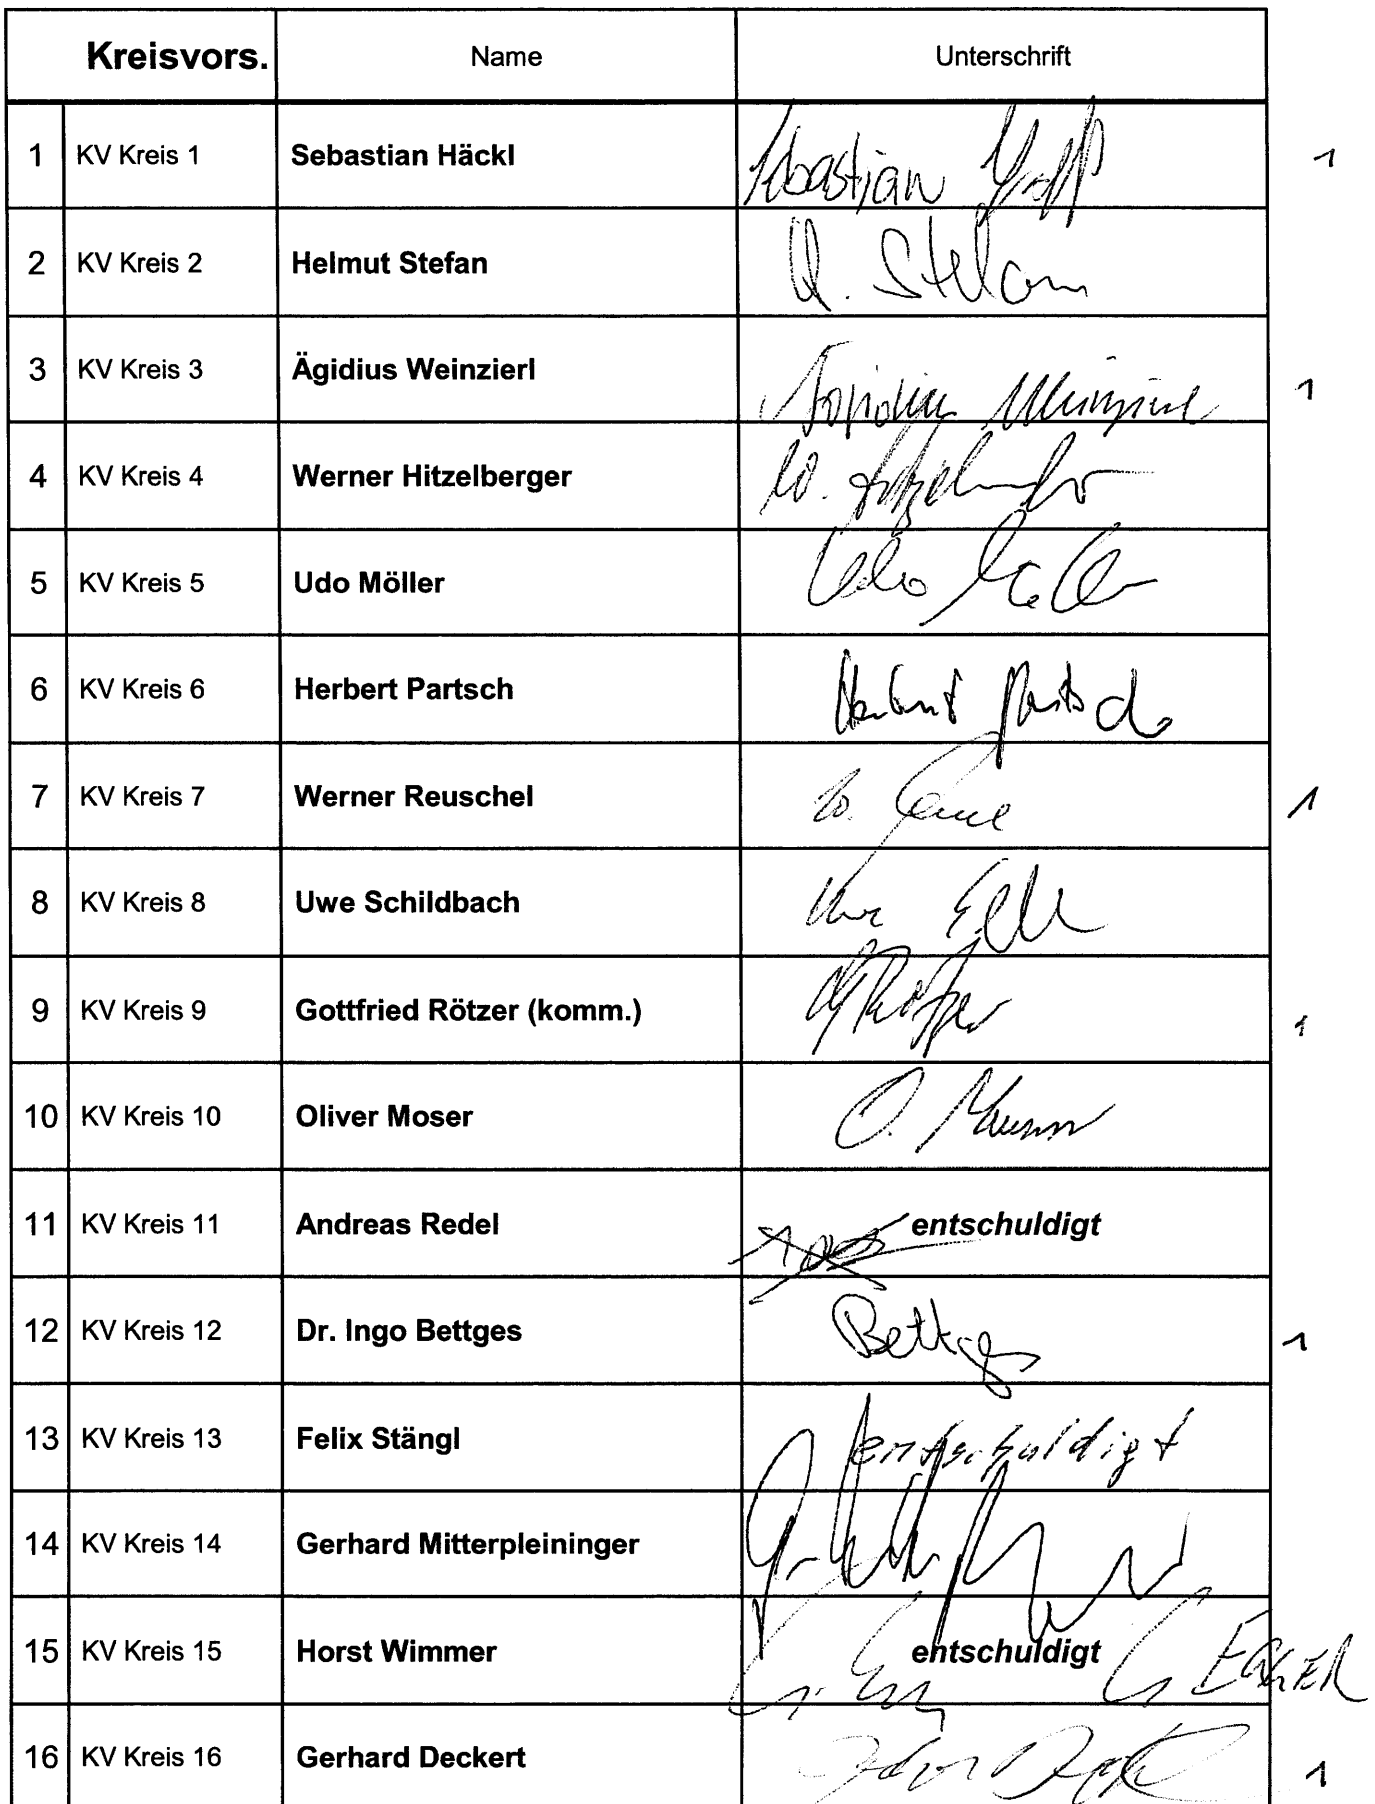 Kreisvors. Name Unterschrift
1 KV Kreis 1 Sebastian Häckl Sebastian 1
2 KV Kreis 2 Helmut Stefan H. Stefan
3 KV Kreis 3 Ägidius Weinzierl Ägidius Weinzierl 1
4 KV Kreis 4 Werner Hitzelberger W. Hitzelberger
5 KV Kreis 5 Udo Möller Udo Möller
6 KV Kreis 6 Herbert Partsch Herbert Partsch
7 KV Kreis 7 Werner Reuschel W. 1
8 KV Kreis 8 Uwe Schildbach Uwe
9 KV Kreis 9 Gottfried Rötzer (komm.) Rötzer 1
10 KV Kreis 10 Oliver Moser O.
11 KV Kreis 11 Andreas Redel entschuldigt
12 KV Kreis 12 Dr. Ingo Bettges Bettges 1
13 KV Kreis 13 Felix Stängl entschuldigt
14 KV Kreis 14 Gerhard Mitterpleininger
15 KV Kreis 15 Horst Wimmer entschuldigt G. EGGER
16 KV Kreis 16 Gerhard Deckert 1